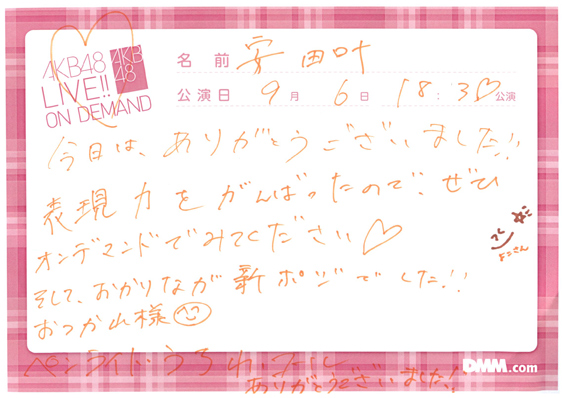 AKB48
LIVE!!
ON DEMAND
AKB
48
名前 安田叶
公演日 9月 6日 18:30公演
今日は、ありがとうございました!!
表現力をがんばったので、ぜひ
オンデマンドでみてください♡
そして、おかりなが新ポジでした!!
おつかれ様
よこさん
ペンライト・うちわ・コール
ありがとうございました!!
DMM.com